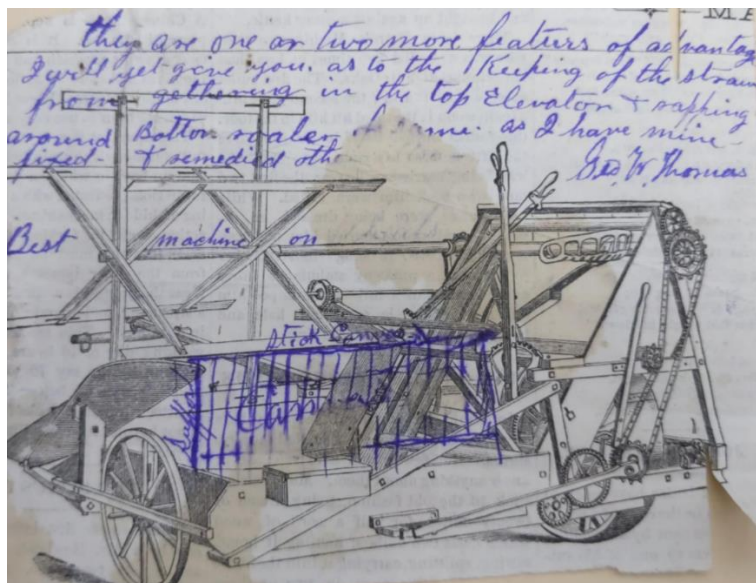 MA
they are one or two more featurs of advantag
I will yet give you. as to the Keeping of the straw
from gethering in the top Elevator + rapping
around Botton of same. as I have mine
fixed - + remedied
Geo. W. Thomas
Best machine on
stick Canvas